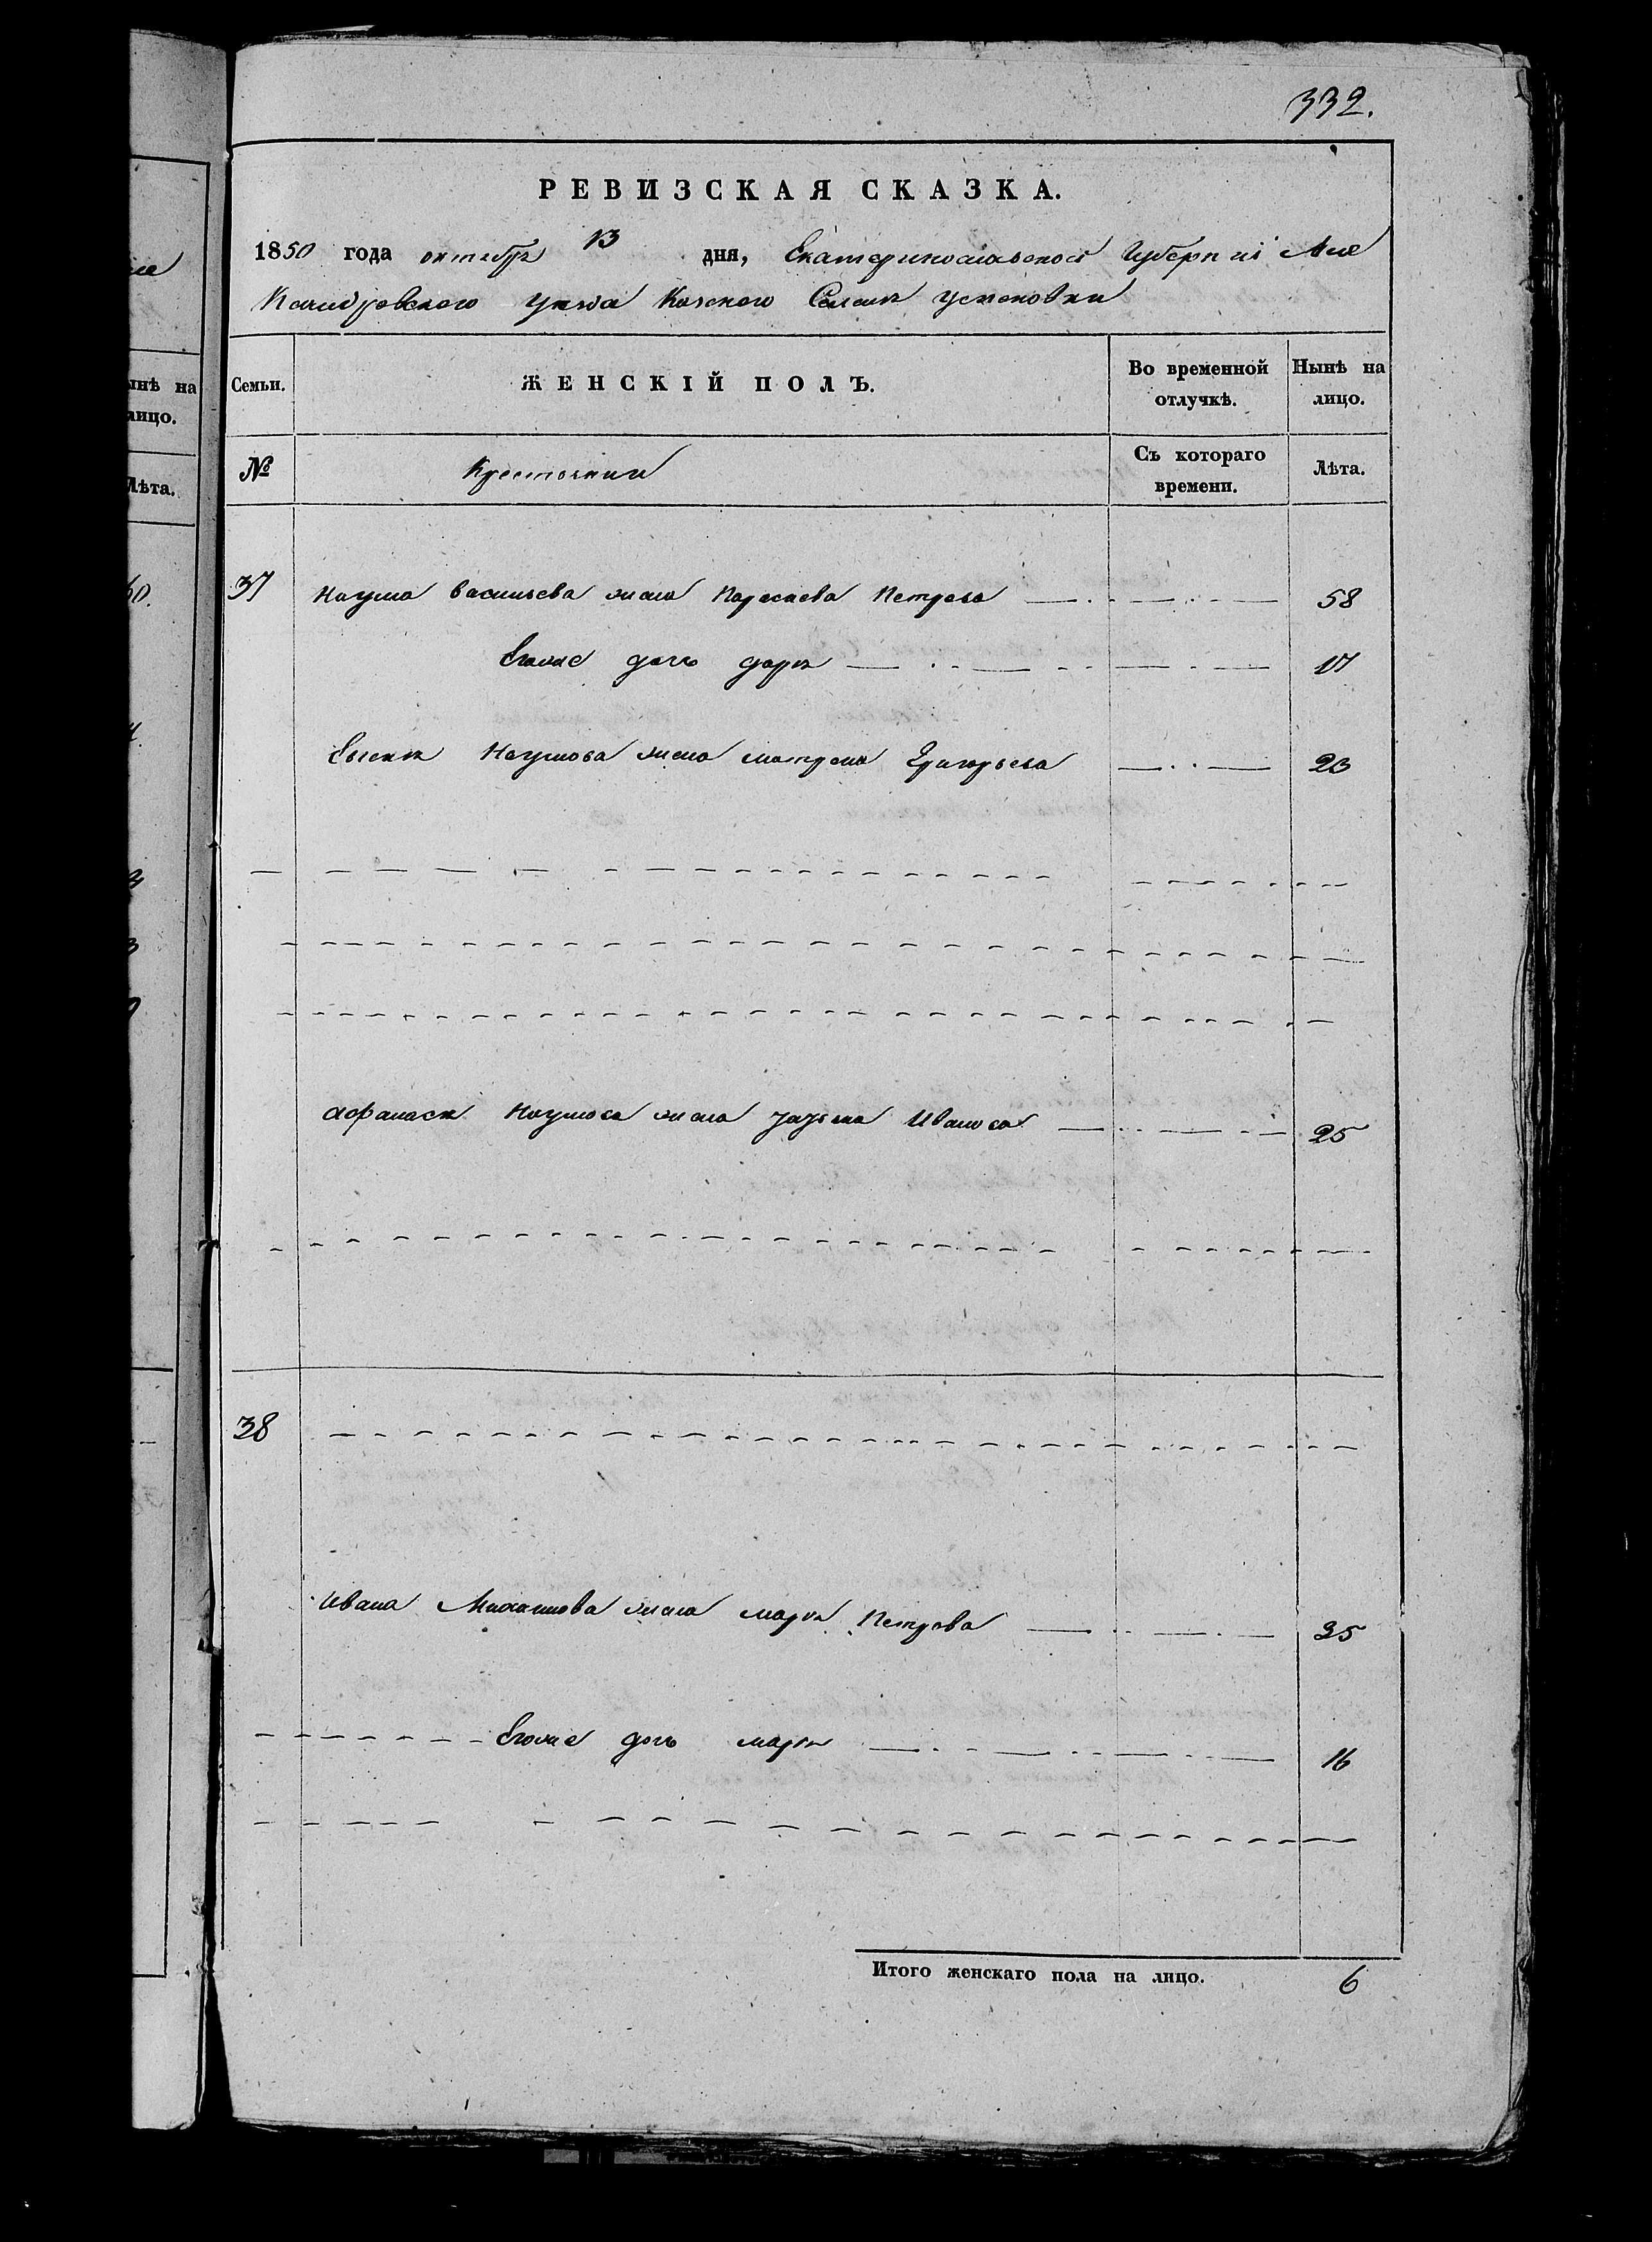 332.
РЕВИЗСКАЯ СКАЗКА.
1850 года октября 13 дня, Екатеринославской Губерніи Але
Ксандровского уезда Козеного Селения Успеновки
Семьи. ЖЕНСКІЙ ПОЛЪ. Во временной отлучкѣ. Нынѣ на лицо.
№ Крестьянии Съ котораго времени. Лѣта.
37 Наума Васильева жена Параскева Петрова 58
Егоже дочь дарья 17
Евсея Наумова жена матрона Григорьева 23
Афанасия Наумова жена Иванова 25
38
Ивана Михайлова жена марья Петрова 35
Егоже дочь марья 16
Итого женскаго пола на лицо. 6
ынѣ на
лицо.
Лѣта.